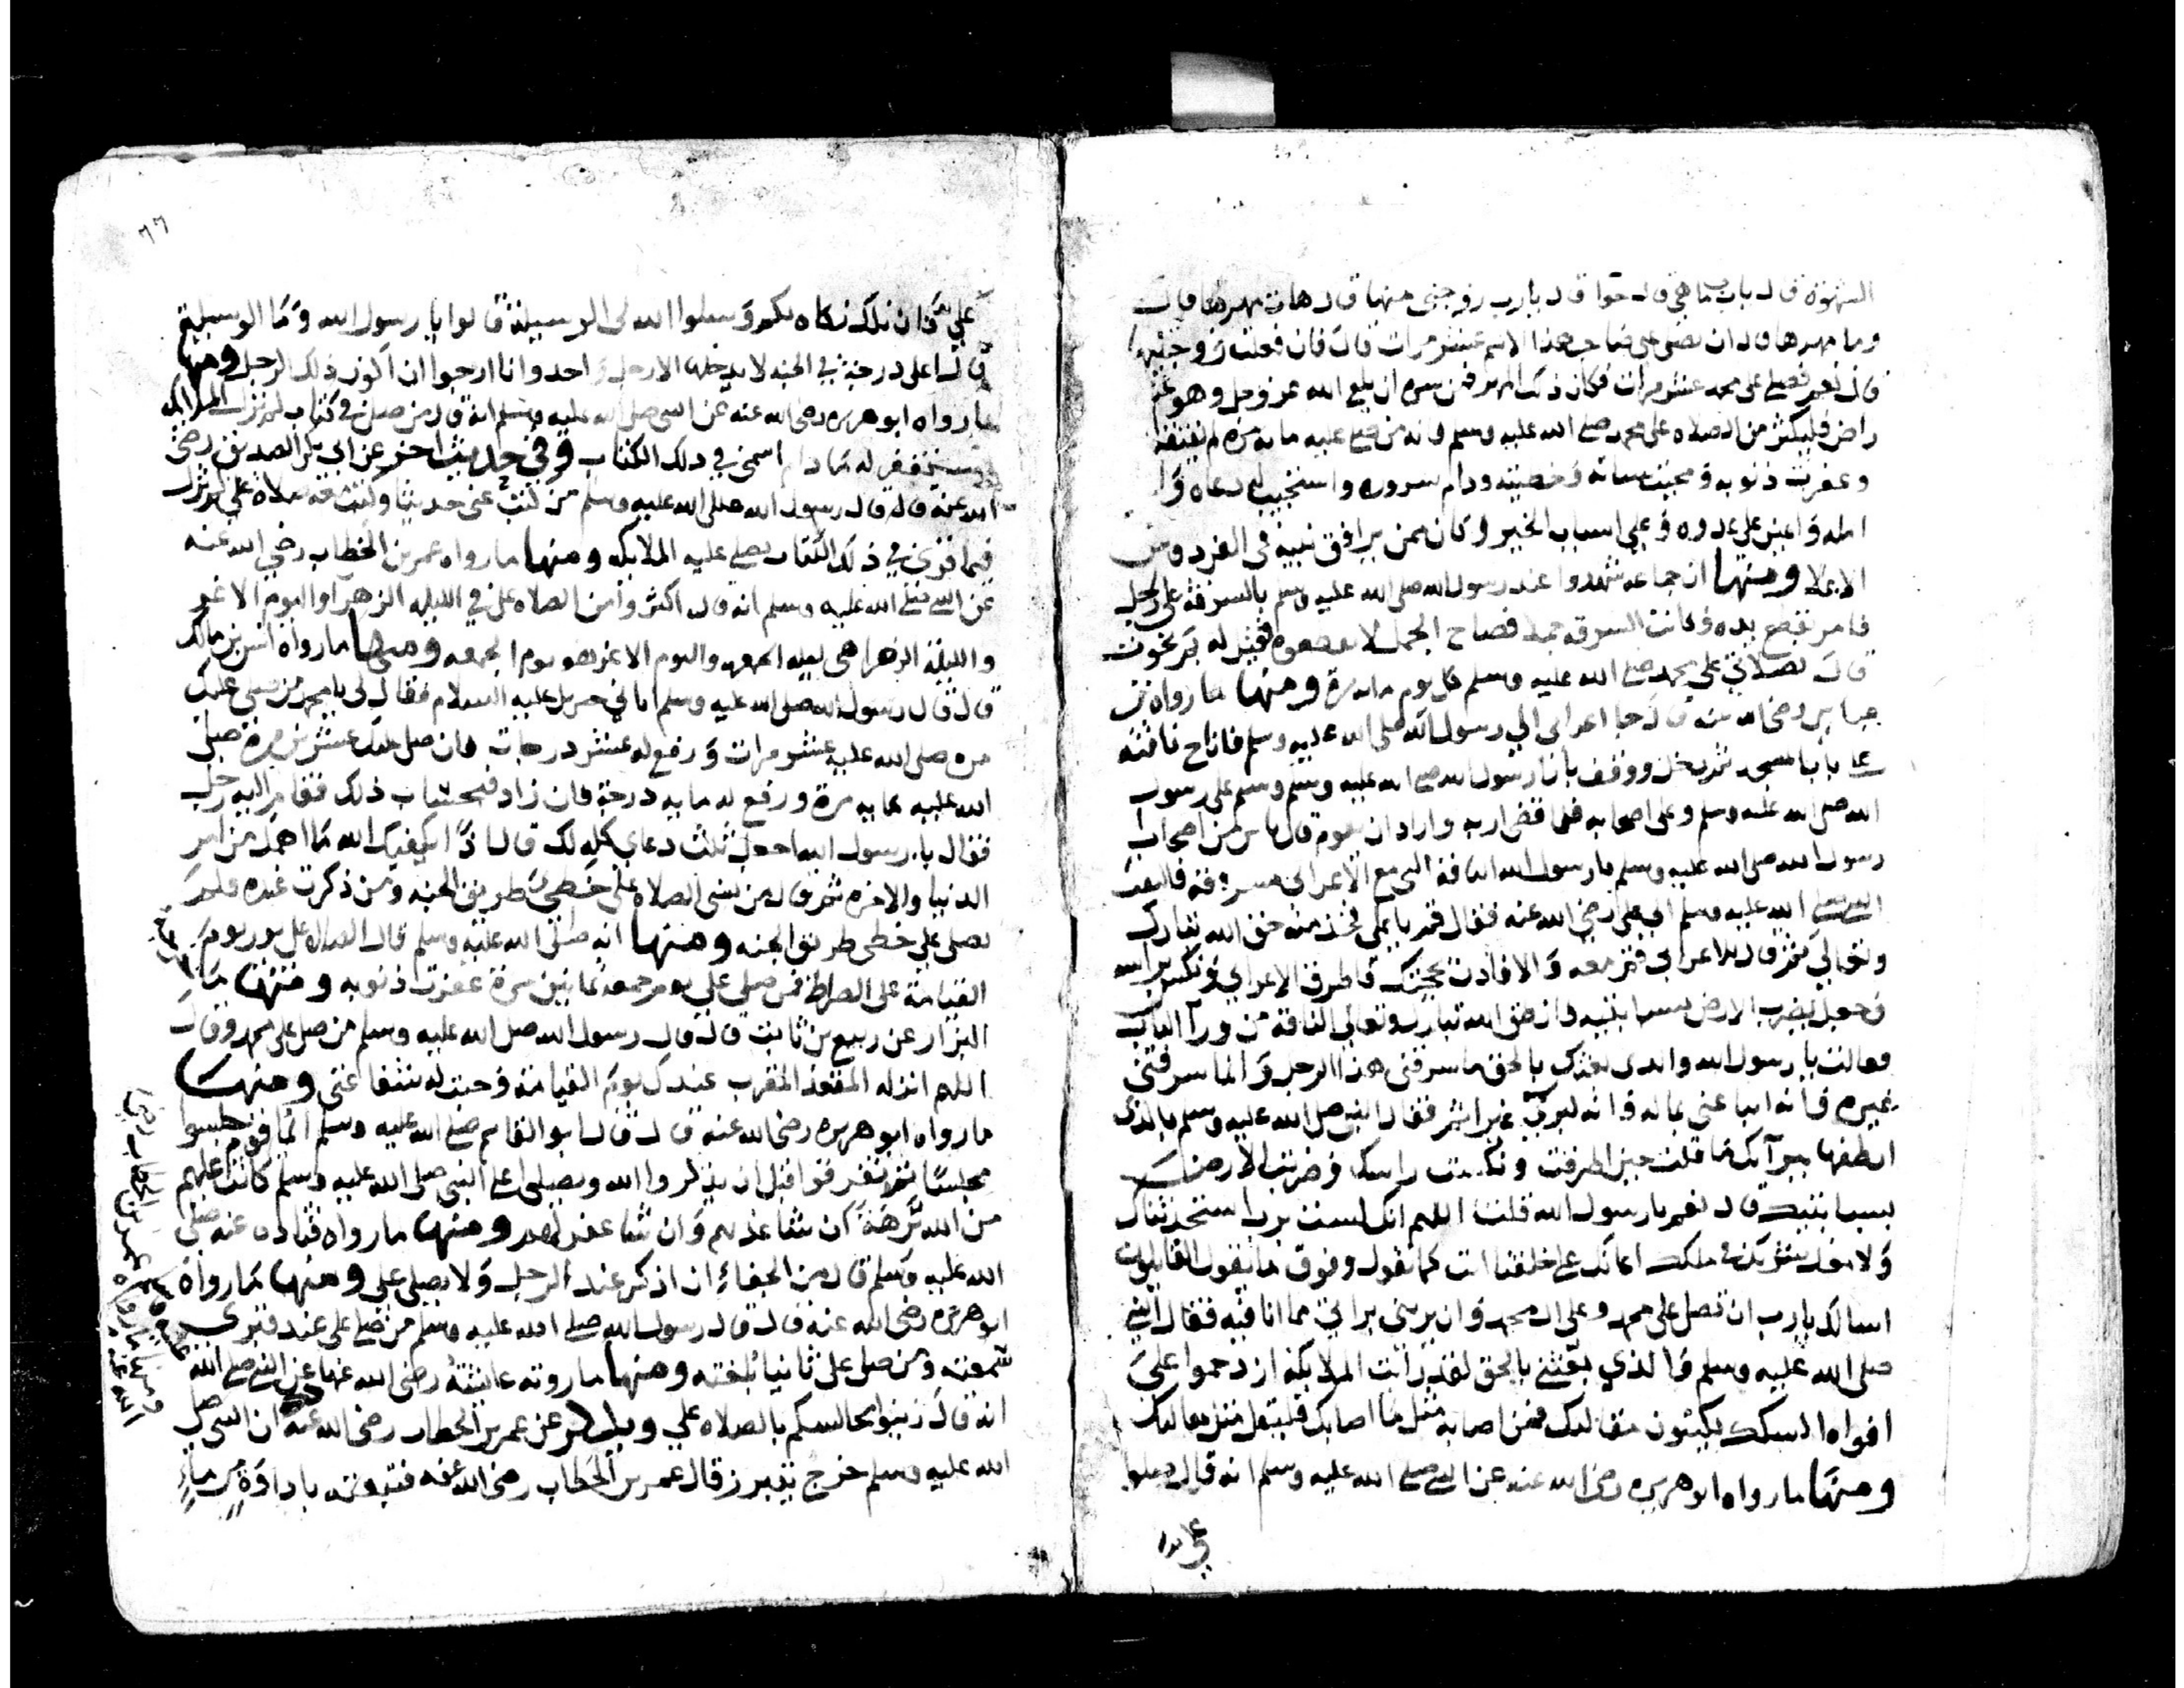 الشهوة قال يارب ما هي قال حوا قال يارب زوجني منها قال هات مهرها قال
وما مهرها قال ان تصلي على صاحب هذا الاسم عشر مرات قال فان فعلت زوجتنيها
قال نعم فصلى على محمد عشر مرات فكان ذلك المهر فمن سره ان يلقى الله عز وجل وهو عنه
راض فليكثر من الصلاه على محمد صلى الله عليه وسلم فانه من صلى عليه مايه مرة لم يفتقر
وغفرت ذنوبه ومحيت سياته وخطيته ودام سروره واستجيب له دعاه و
امله واعين على عدوه وعلى اسباب الخير وكان ممن يرافق نبيه في الفردوس
الاعلا ومنها ان جماعه شهدوا عند رسول الله صلى الله عليه وسلم بالسرقه على رجل
فامر بقطع يده وكانت السرقه جملا فصاح الجمل لا تقطعوه فقيل له بم نجوت
قال بصلاتي على محمد صلى الله عليه وسلم كل يوم مايه مرة ومنها ما رواه
جابر رضي الله عنه قال جا اعرابي الى رسول الله صلى الله عليه وسلم فاناخ ناقته
على باب المسجد ثم دخل ووقف بازا رسول الله صلى الله عليه وسلم وسلم على رسول
الله صلى الله عليه وسلم وعلى اصحابه فلما قضى اربه واراد ان يقوم قال ناس من اصحاب
رسول الله صلى الله عليه وسلم يا رسول الله ان الناقة التي مع الاعرابي مسروقة فالتفت
النبي صلى الله عليه وسلم الى علي رضي الله عنه فقال قم يا علي فخذ منه حق الله تبارك
وتعالى ثم قال للاعرابي قم معه والا فادل بحجتك فاطرق الاعرابي ونكس براسه
وجعل يضرب الارض بسبابتيه فانطق الله تبارك وتعالى الناقة من ورآ الباب
فقالت يا رسول الله والذي بعثك بالحق ما سرقني هذا الرجل وانما سرقني
غيره فانه ابتاعني بماله وانه لبري غير اثم فقال النبي صلى الله عليه وسلم بالذي
انطقها ببرآتك ما قلت حين اطرقت ونكست راسك وضربت الارض
بسبابتيك قال نعم يا رسول الله قلت اللهم انك لست برب استحدثناك
ولا معك شريك في ملكك اعانك على خلقنا انت كما تقول وفوق ما يقول القايلون
اسالك يارب ان تصلي على محمد وعلى ال محمد وان تريني براتي مما انا فيه فقال النبي
صلى الله عليه وسلم والذي بعثني بالحق لقد رايت الملايكة ازدحموا على
افواه السكك يكتبون مقالتك فمن اصابه مثل ما اصابك فليقل مثل مقالتك
ومنها ما رواه ابو هريره رضي الله عنه عن النبي صلى الله عليه وسلم انه قال صلوا
علي فان
٦٦
علي فان تلك زكاه لكم وسلوا الله لي الوسيلة قالوا يا رسول الله وما الوسيلة
قال اعلى درجة في الجنه لا يدخلها الا رجل واحد وانا ارجوا ان اكون ذلك الرجل ومنها
ما رواه ابو هريره رضي الله عنه عن النبي صلى الله عليه وسلم انه قال من صلى في كتاب لم تزل الملايكه
تستغفر له ما دام اسمي في ذلك الكتاب وفي حديث اخر عن ابي بكر الصديق رضي
الله عنه قال قال رسول الله صلى الله عليه وسلم من كتب عني حديثا وكتب معه صلاة علي لم يزل
فيما قوي في ذلك الكتاب تصلي عليه الملايكه ومنها ما رواه عمر بن الخطاب رضي الله عنه
عن النبي صلى الله عليه وسلم انه قال اكثروا من الصلاه علي في الليله الزهرآ واليوم الاغر
والليلة الزهرا هي ليله الجمعه واليوم الاغر هو يوم الجمعه ومنها ما رواه انس بن مالك
قال قال رسول الله صلى الله عليه وسلم اتاني جبريل عليه السلام فقال لي يا محمد من صلى عليك
مره صلى الله عليه عشر مرات ورفع له عشر درجات فان صلى عليك عشرين مرة صلى
الله عليه مايه مرة ورفع له مايه درجة فان زاد فبحساب ذلك فقام اليه رجل
فقال يا رسول الله اجعل ثلث دعاي كله لك قال اذا يكفيك الله ما اهمك من امر
الدنيا والاخره ثم قال من نسي الصلاه علي خطي طريق الجنه ومن ذكرت عنده فلم
يصلي علي خطي طريق الجنه ومنها انه صلى الله عليه وسلم قال الصلاه علي نور يوم
القيامة على الصراط فمن صلى علي يوم جمعه ثمانين مرة غفرت ذنوبه ومنها ما
البزار عن ربيع بن ثابت قال قال رسول الله صلى الله عليه وسلم من صلى على محمد وقال
اللهم انزله المقعد المقرب عندك يوم القيامة وجبت له شفاعتي ومنها
ما رواه ابو هريره رضي الله عنه قال قال ابو القاسم صلى الله عليه وسلم ايما قوم جلسوا
مجلسا ثم تفرقوا قبل ان يذكروا الله ويصلوا على النبي صلى الله عليه وسلم كانت عليهم
من الله ترهة ان شا عذبهم وان شا غفر لهم ومنها ما رواه قتاده عنه صلى
الله عليه وسلم قال من الجفاء ان اذكر عند الرجل ولا يصلي علي ومنها ما رواه
ابو هريره رضي الله عنه قال قال رسول الله صلى الله عليه وسلم من صلى علي عند قبري
سمعته ومن صلى علي نائيا بلغته ومنها ما روته عايشة رضي الله عنها عن النبي صلى الله
انه قال زينوا مجالسكم بالصلاه علي وبذكر عمر بن الخطاب رضي الله عنه ان النبي صلى
الله عليه وسلم خرج يتبرز قال عمر بن الخطاب رضي الله عنه فتبعته باداوة من ماء
عليه وسلم
ومنها ما رواه عمر بن الخطاب رضي
الله عنه